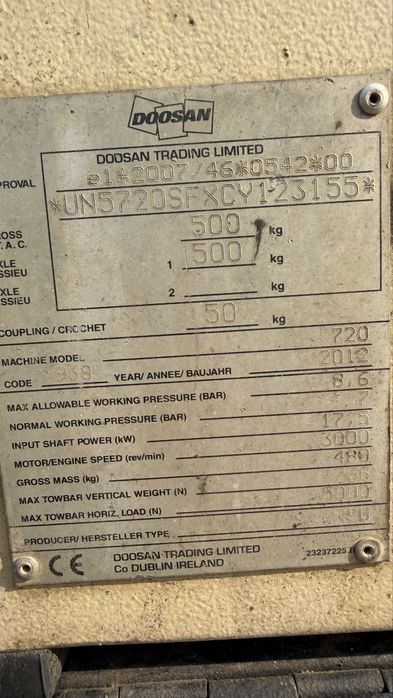 DOOSAN
DOOSAN TRADING LIMITED
PROVAL e1*2007/46*0542*00
*UN5720SFXCY123155*
OSS T.A.C. 500 kg
XLE SSIEU 1 500 kg
XLE SSIEU 2 kg
COUPLING / CROCHET 50 kg
MACHINE MODEL 720
CODE YEAR/ ANNEE/ BAUJAHR 2012
MAX ALLOWABLE WORKING PRESSURE (BAR) 8,6
NORMAL WORKING PRESSURE (BAR) 7
INPUT SHAFT POWER (kW) 17,5
MOTOR/ENGINE SPEED (rev/min) 3000
GROSS MASS (kg) 480
MAX TOWBAR VERTICAL WEIGHT (N)
MAX TOWBAR HORIZ. LOAD (N)
PRODUCER/ HERSTELLER TYPE
CE DOOSAN TRADING LIMITED
Co DUBLIN IRELAND
23237225.B